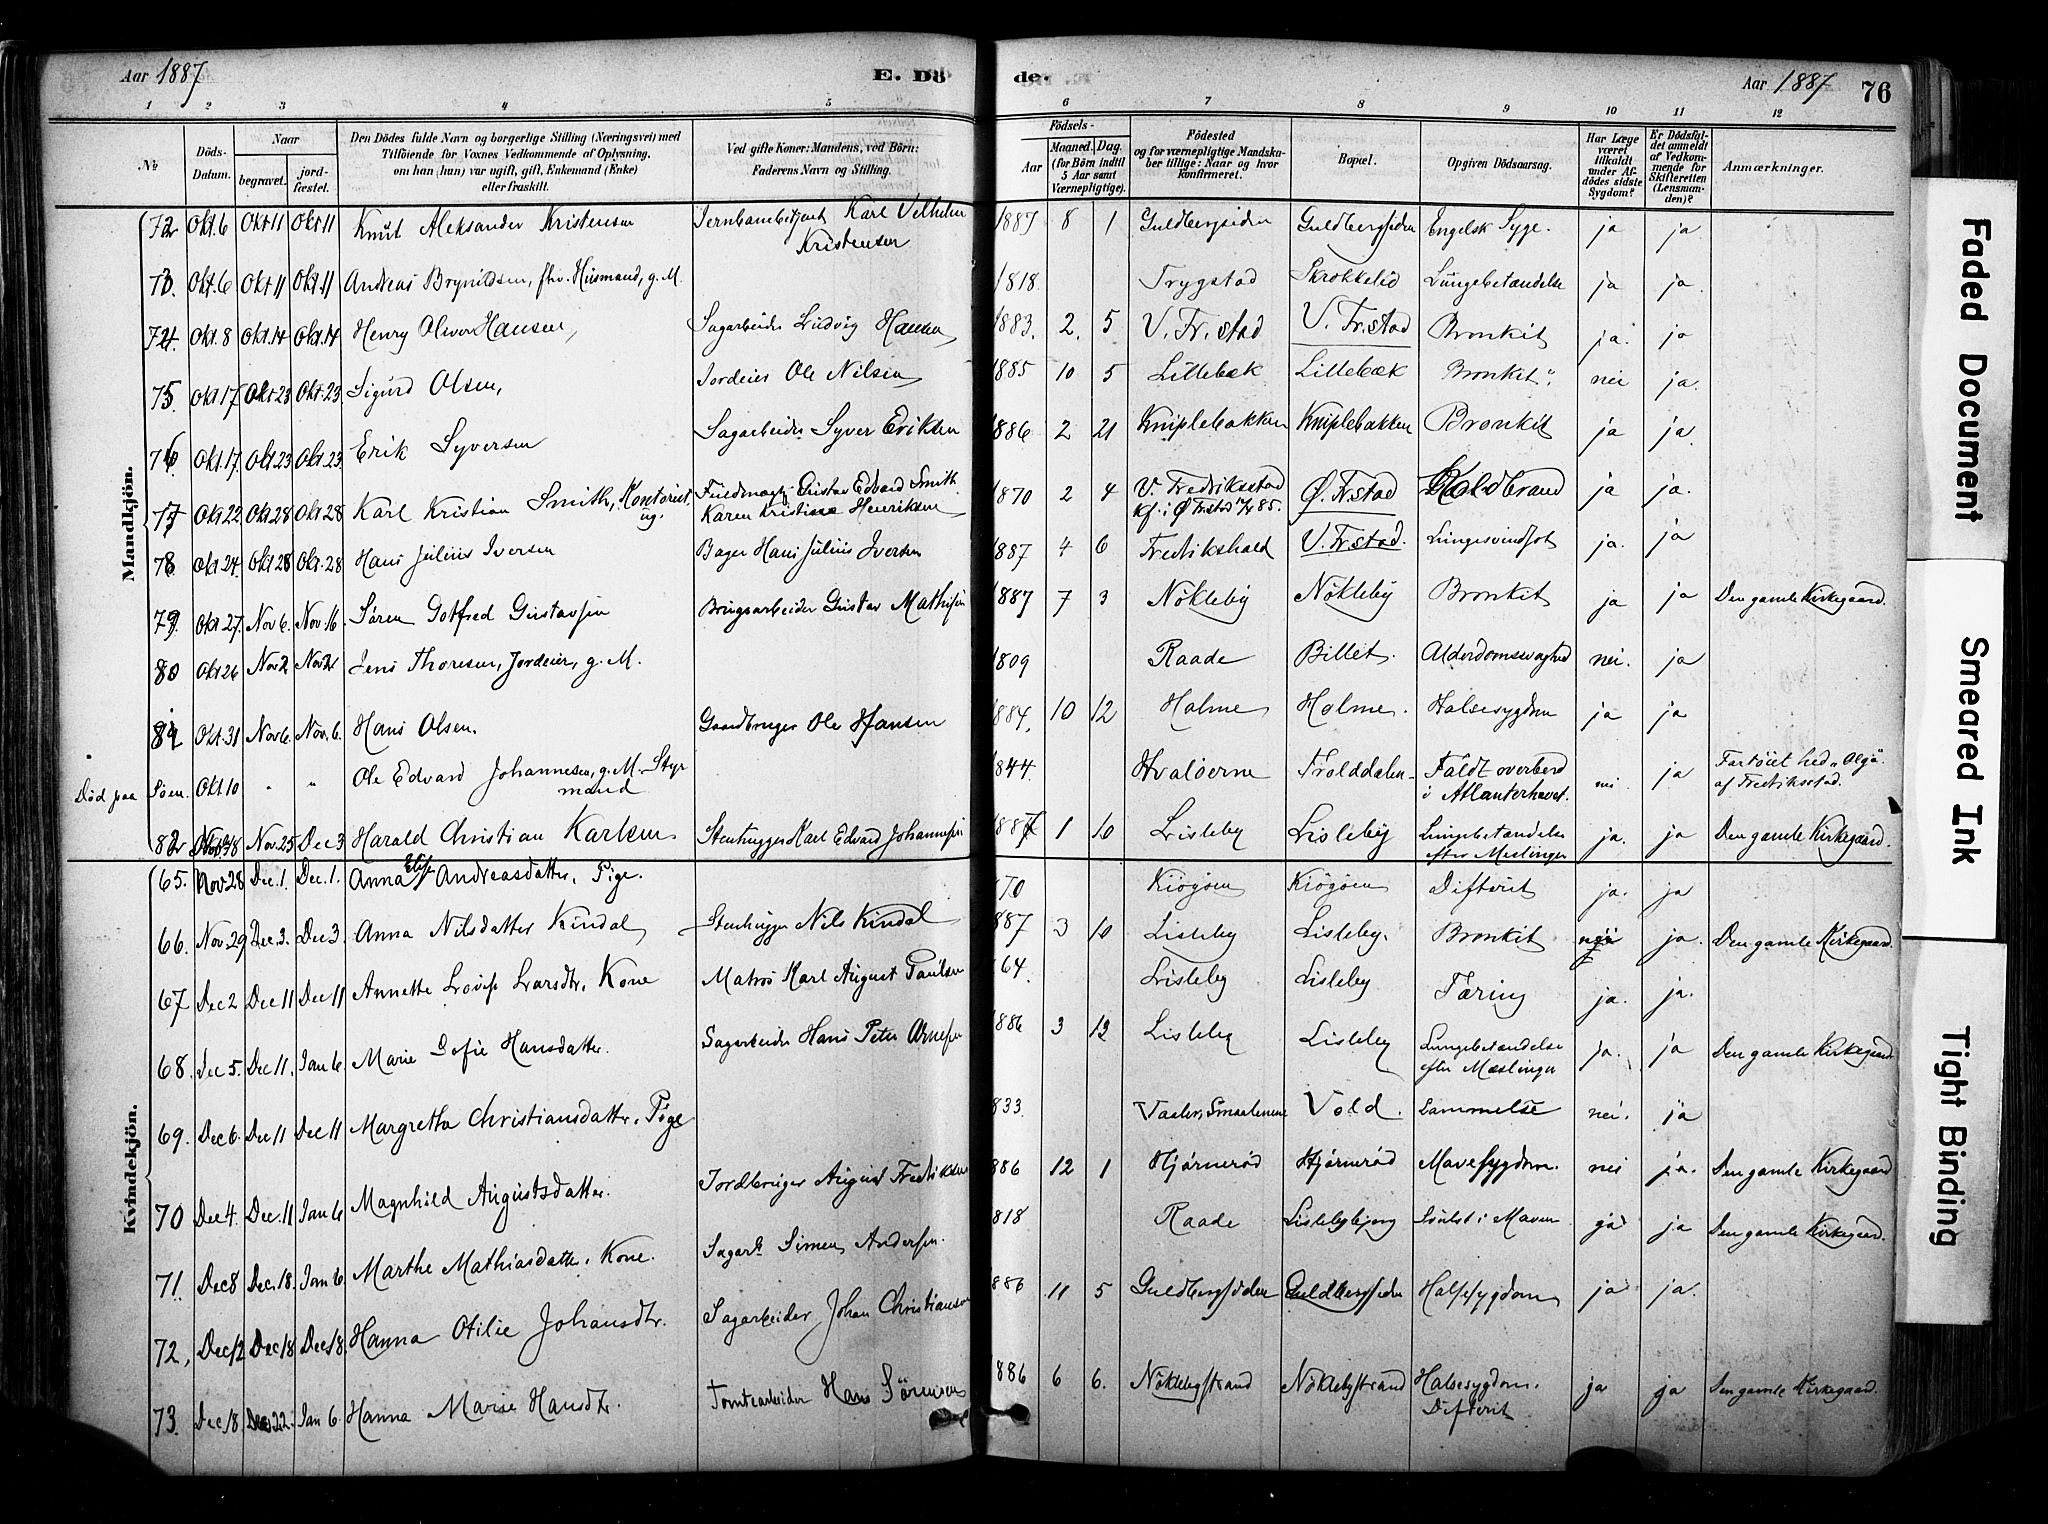 Aar 1887
E. Dö
de.
Aar 1887
76
1 2 3 4 5 6 7 8 9 10 11 12
No
Döds-Datum.
Naar
begravet.
jord-fæstet.
Den Dödes fulde Navn og borgerlige Stilling (Næringsvei) med
Tilföiende for Voxnes Vedkommende af Oplysning,
om han (hun) var ugift, gift, Enkemand (Enke)
eller fraskilt.
Ved gifte Koner: Mandens, ved Börn:
Faderens Navn og Stilling.
Födsels-
Aar
Maaned. Dag.
(for Börn indtil 5 Aar samt Værnepligtige).
Födested
og for værnepligtige Mandskaber tillige: Naar og hvor Konfirmeret.
Bopæl.
Opgiven Dödsaarsag.
Har Læge været tilkaldt under Afdödes sidste Sygdom?
Er Dödsfaldet anmeldt af Vedkommende for Skifteretten (Lensmanden)?
Anmærkninger.
Mandkjön.
72 Okt. 6 Okt 11 Okt 11 Knut Aleksander Kristensen Jernbanebetjent Karl Vilhelm Kristensen 1887 8 1 Guldbergsiden Guldbergsiden Engelsk Syge. ja ja
73. Okt. 6 Okt 11 Okt. 11 Andreas Brynildsen, fhv. Husmand, g. M. 1818. Trygstad Skrokkelid Lungebetændelse ja ja.
74. Okt. 8 Okt. 14 Okt. 14 Henry Oliver Hansen, Sagarbeider Ludvig Hansen 1883. 2. 5 V. Fr.stad V. Fr.stad Bronkit ja. ja
75. Okt 17 Okt. 23 Okt. 23. Sigurd Olsen, Jordeier Ole Nilsen 1885 10 5 Lillebæk Lillebæk Bronkit. nei ja.
76 Okt. 17. Okt 23 Okt. 23. Erik Syversen Sagarbeider Syver Eriksen 1886 2 21 Kniplebakken Kniplebakken Bronkit ja ja.
77 Okt 22 Okt 28 Okt 28 Karl Kristian Smith, Kontorist, ug. Fuldmægtig Gustav Edvard Smith. Karen Kristine Henriksen 1870 2 4 V. Fredriksstad Kf. i Ø Fr.stad 85. Ø. Fr.stad Koldbrand ja ja.
78. Okt 24. Okt 28 Okt. 28 Hans Julius Iversen Bager Hans Julius Iversen 1887 4 6 Fredrikshald V. Fr.stad. Lungesvindsot ja. ja
79. Okt. 27. Nov 6. Nov. 16. Søren Gotfred Gustavsen Brugsarbeider Gustav Mathisen 1887 7 3 Nökleby Nökleby Bronkit ja ja Den gamle Kirkegaard.
80 Okt 26 Nov 2 Nov 2 Jens Thoresen, Jordeier, g. M. 1809 Raade Billet. Alderdomssvaghed nei. ja
81 Okt. 31 Nov 6. Nov. 6. Hans Olsen. Gaardbruger Ole Hansen 1884. 10 12 Holme Holme. Halsesygdom ja ja
Död paa Söen. Okt 10 " " Ole Edvard Johannesen, g. M. Styrmand 1844 Hvaløerne Trolddalen Faldt overbord i Atlanterhavet. nei ja Fartöiet hed "Olga" af Fredriksstad.
82 Nov. 18 Nov. 25 Dec 3 Harald Christian Karlsen Stenhugger Karl Edvard Johannesen 1887 1 16 Lisleby Lisleby Lungebetændelse efter Meslinger ja. ja Den gamle Kirkegaard.
Kvindekjön.
65. Nov 28 Dec. 1. Dec. 1. Anna Elise Andreasdatter. Pige. 70 Kiögöen Kiögöen Difterit ja. ja
66. Nov. 29 Dec. 3. Dec 3. Anna Nilsdatter Kindal Stenhugger Nils Kindal 887 3 10 Lisleby Lisleby. Bronkit nei ja. Den gamle Kirkegaard.
67 Dec 2 Dec 11 Dec 11 Annette Lovise Larsdtr. Kone Matros Karl August Paulsen 64. Lisleby Lisleby Tæring ja. ja.
68. Dec 5. Dec 11. Jan 6. Marie Sofie Hansdatter. Sagarbeider Hans Peter Arnesen 886 3 13 Lisleby Lisleby Lungebetændelse efter Mæslinger ja. ja Den gamle Kirkegaard
69. Dec 6. Dec 11 Dec 11 Margretha Christiansdatter. Pige 833. Vaaler, Smaalenene Vold. Lammelse nei. ja
70 Dec 4. Dec. 11 Jan 6 Magnhild Augustsdatter. Jordbruger August Fredriksen 886 12 1 Hjörneröd Hjörneröd Mavesygdom. nei ja. Den gamle Kirkegaard
71. Dec 8 Dec. 18. Jan 6. Marthe Mathiasdatter. Kone. Sagarb. Simen Andersen. 818 Raade Lislebybjerg Svulst i Maven ja ja Den gamle Kirkegaard.
72. Dec 12 Dec 18 Dec 18. Hanna Otilie Johansdtr. Sagarbeider Johan Christiansen 886 11 5 Guldbergsiden Guldbergsiden Halsesygdom ja ja.
73. Dec 18. Dec 22. Jan 6. Hanna Marie Hansdtr. Tomtearbeider Hans Sörensen 886 6 6. Nöklebystrand Nöklebystrand Halsesygdom. Difterit ja ja Den gamle Kirkegaard.
Faded Document
Smeared Ink
Tight Binding